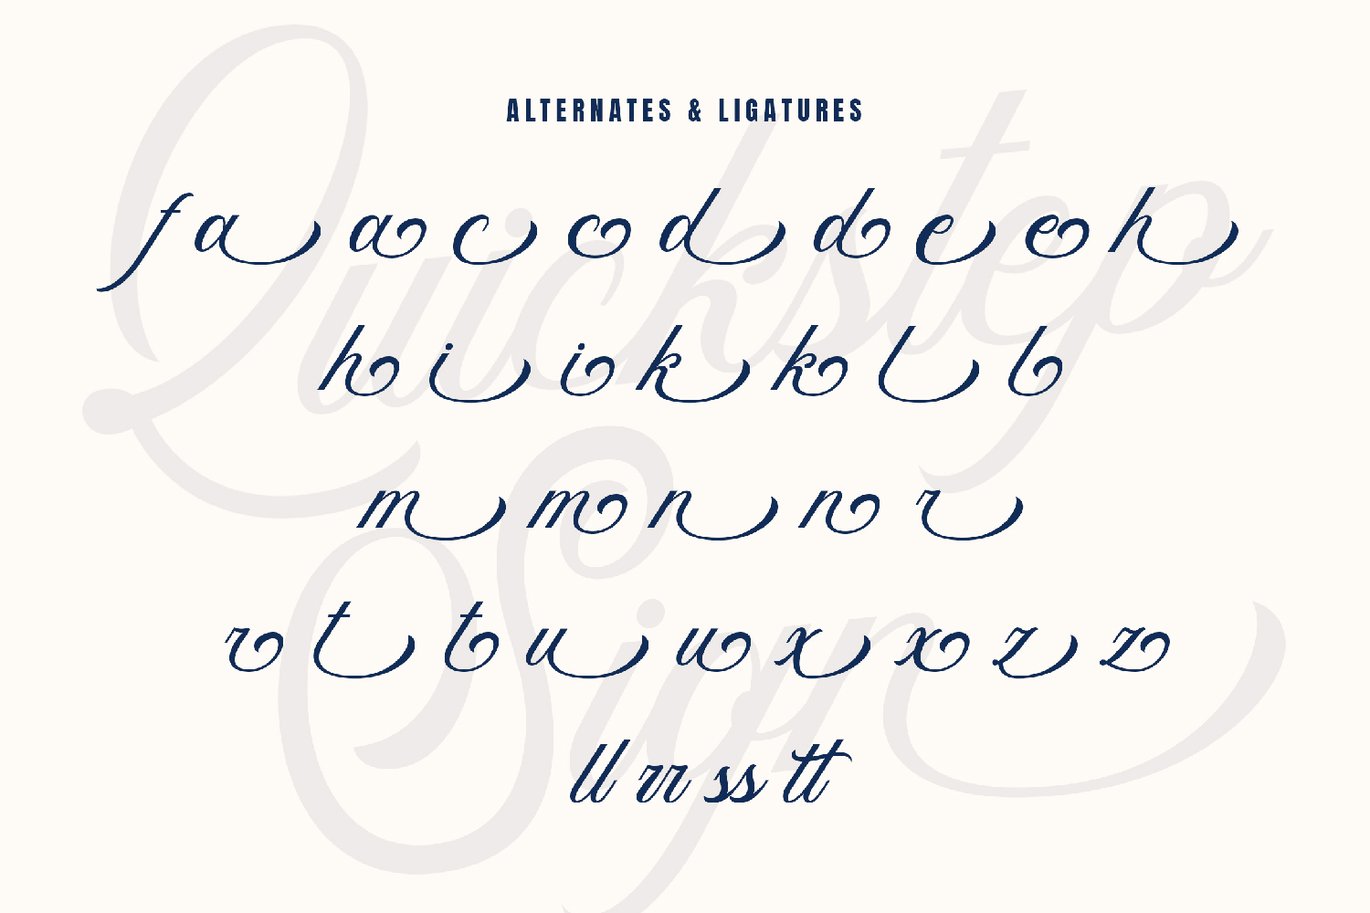 ALTERNATES & LIGATURES
f a a c c d d e e h
h i i k k l l
m m n n r
r t t u u x x z z
ll rr ss tt
Quickstep
Sign